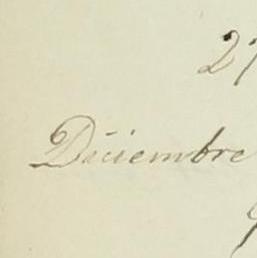 27
Diciembre